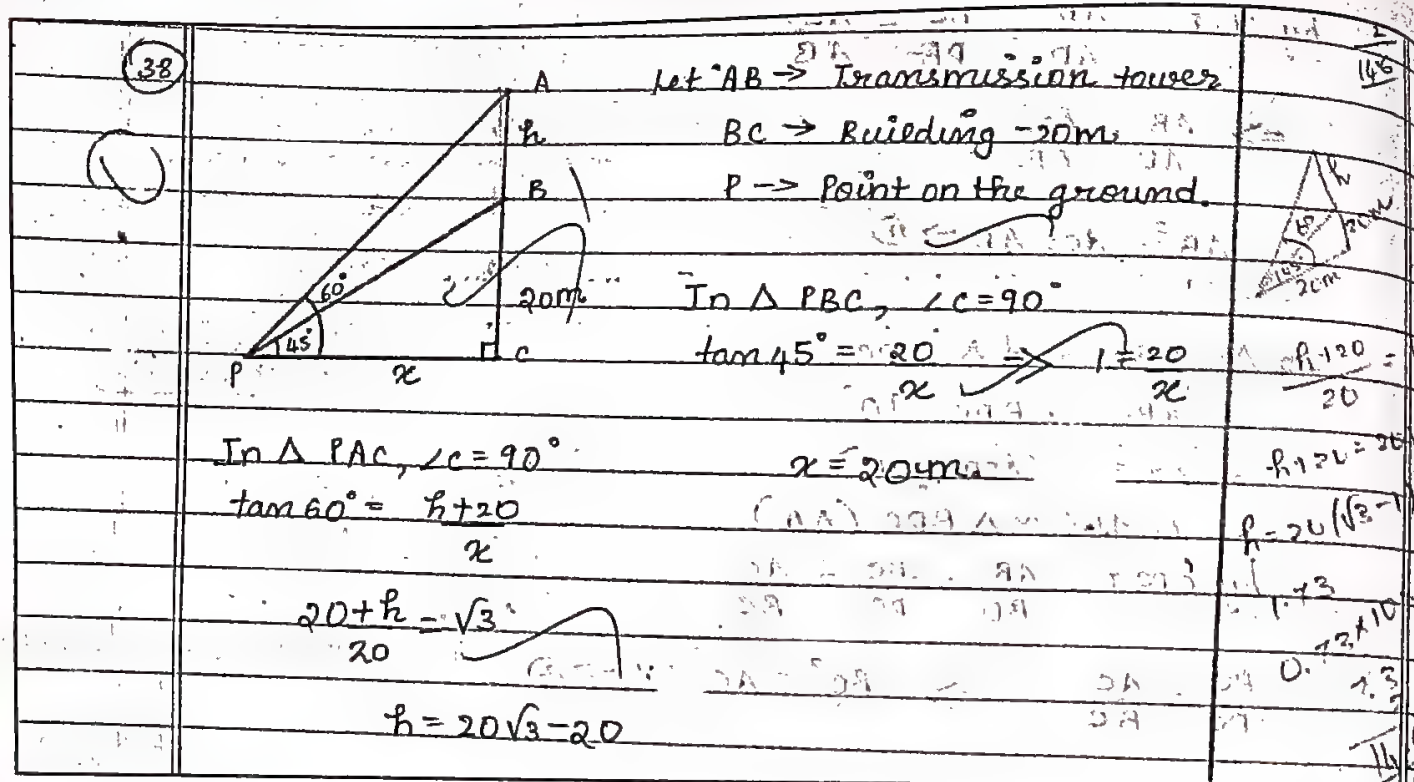 38
A
h
B
60°
20m
45°
P
x
C
Let AB → Transmission tower
BC → Building - 20m
P → Point on the ground.
In Δ PBC, ∠C = 90°
tan 45° = 20/x ⇒ 1 = 20/x
x = 20m.
In Δ PAC, ∠C = 90°
tan 60° = h+20/x
20+h/20 = √3
h = 20√3 - 20
h
60
20m
45°
20m
h+20/20 =
h = 20(√3-1
1.73